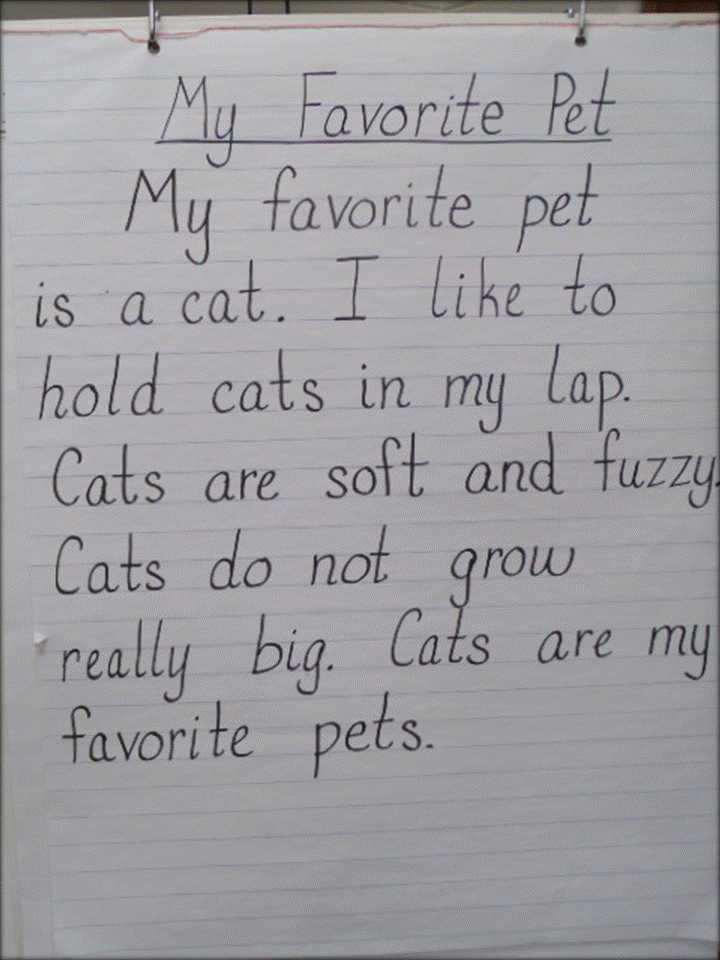 My Favorite Pet
My favorite pet
is a cat. I like to
hold cats in my lap.
Cats are soft and fuzzy.
Cats do not grow
really big. Cats are my
favorite pets.